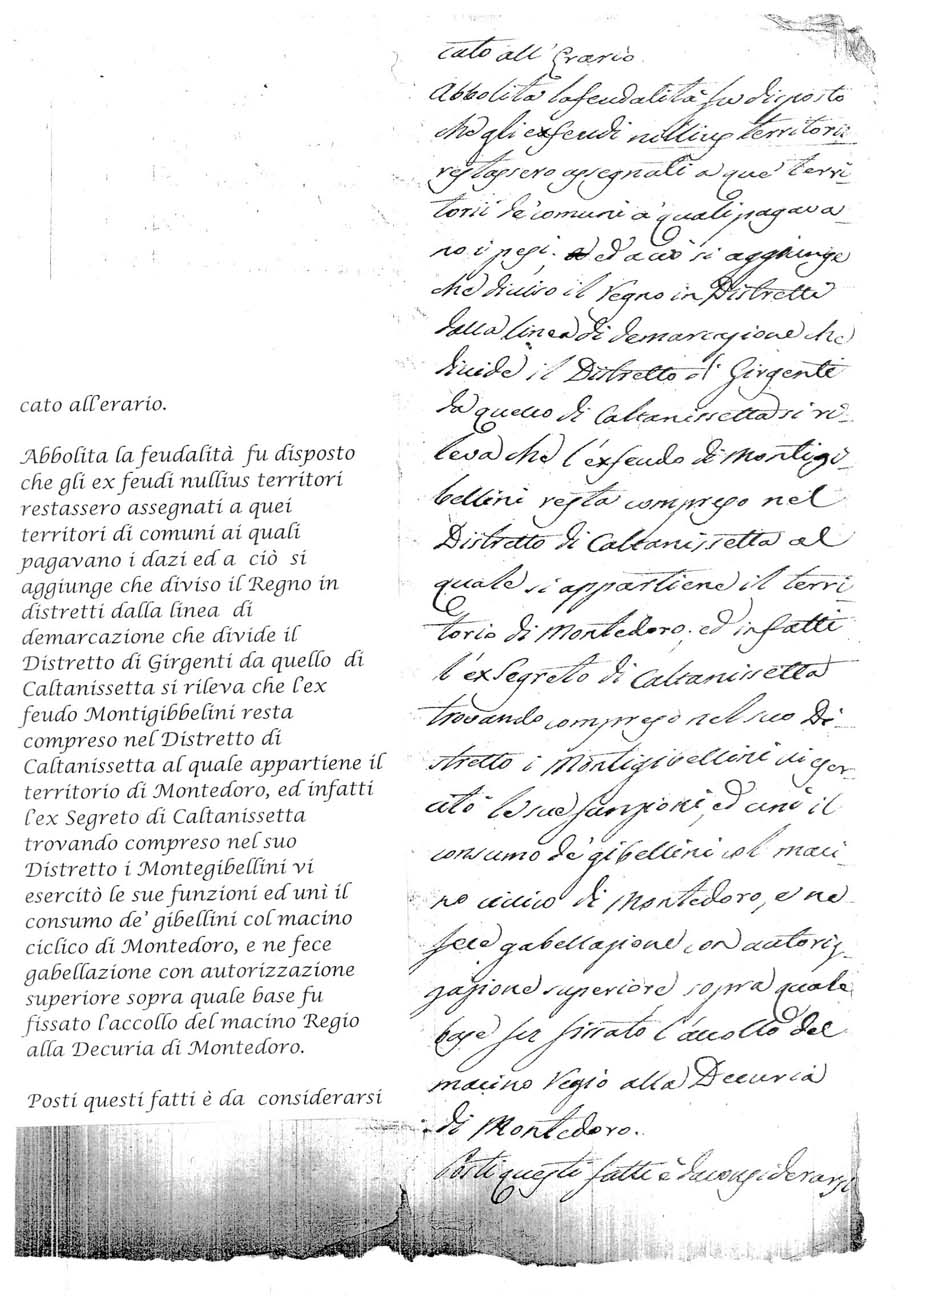 cato all'erario.
Abbolita la feudalità fu disposto
che gli ex feudi nullius territori
restassero assegnati a quei
territori di comuni ai quali
pagavano i dazi ed a ciò si
aggiunge che diviso il Regno in
distretti dalla linea di
demarcazione che divide il
Distretto di Girgenti da quello di
Caltanissetta si rileva che l'ex
feudo Montigibbelini resta
compreso nel Distretto di
Caltanissetta al quale appartiene il
territorio di Montedoro, ed infatti
l'ex Segreto di Caltanissetta
trovando compreso nel suo
Distretto i Montegibellini vi
esercitò le sue funzioni ed unì il
consumo de' gibellini col macino
ciclico di Montedoro, e ne fece
gabellazione con autorizzazione
superiore sopra quale base fu
fissato l'accollo del macino Regio
alla Decuria di Montedoro.
Posti questi fatti è da considerarsi
cato all'Erario
Abbolita la feudalità fu disposto
che gli exfeudi nullius territorii
restassero assegnati a que' terri-
torii de' comuni a' quali pagava-
no i pesi. ed a ciò si aggiunge
che diviso il Regno in Distretti
dalla linea di demarcazione che
divide il Distretto di Girgenti
da quello di Caltanissetta si ri-
leva che l'exfeudo di Montigi-
bellini resta compreso nel
Distretto di Caltanissetta al
quale si appartiene il terri-
torio di Montedoro; ed infatti
l'exSegreto di Caltanissetta
trovando compreso nel suo Di-
stretto i Montigivellini vi eser-
citò le sue funzioni, ed unì il
consumo de' gibellini col maci-
no civico di Montedoro, e ne
fece gabellazione con autoriz-
zazione superiore sopra quale
base fu fissato l'accollo del
macino Regio alla Decuria
di Montedoro.
Posti questi fatti è da considerarsi